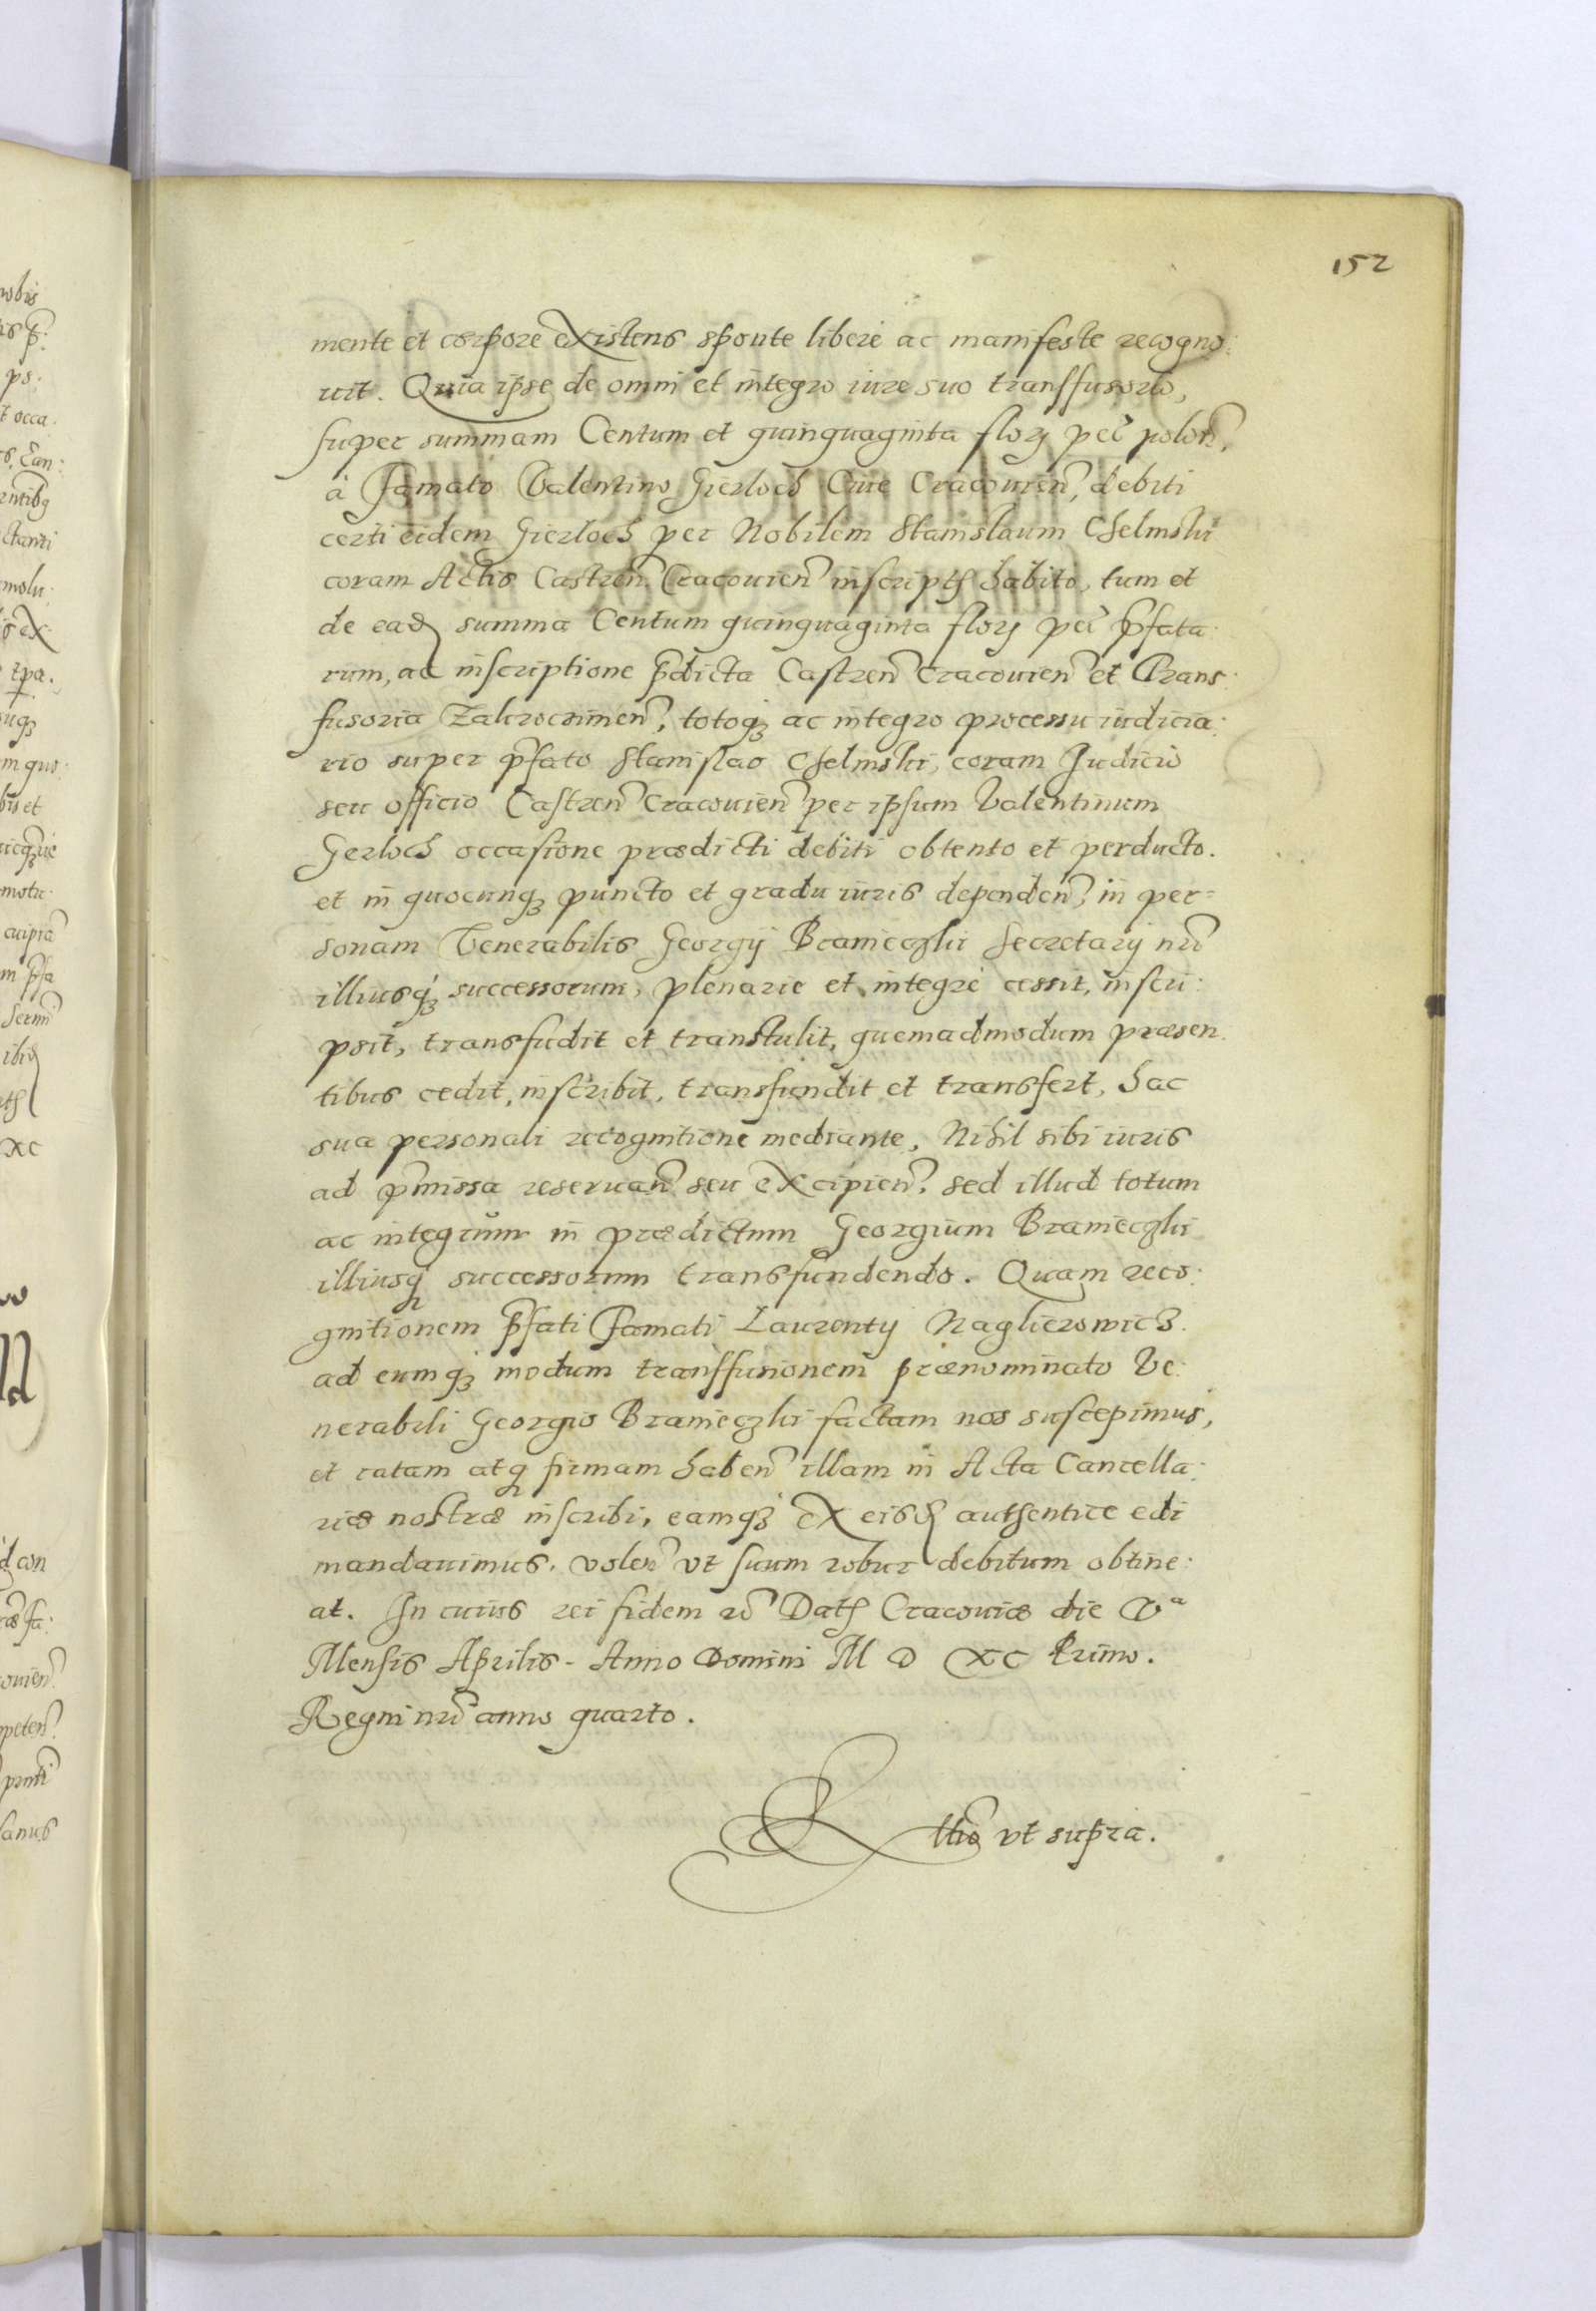 152
mente et corpore existens sponte libere ac manifeste recogno:
uit. Quia ipse de omni et integro iure suo transfusorio,
super summam Centum et quinquaginta flor pec polon,
à Famato Valentino Gierloch Ciue Cracouien, debiti
certi eidem Gierloch per Nobilem Stanislaum Chelmski
coram Actis Castren Cracouien inscript habito, tum et
de ead summa Centum quinquaginta flor pec pfata:
rum, ac inscriptione pdicta Castren Cracouien et Trans:
fusoria Zakrocimen, totoq ac integro processu iudicia:
rio super pfato Stanislao Chelmski, coram Iudicio
seu officio Castren Cracouien per ipsum Valentinum
Gerloch occasione prædicti debiti obtento et perducto.
et in quocunq puncto et gradu iuris dependen, in per=
sonam Venerabilis Georgij Branieczki Secretarij nri
illiusq successorum, plenarie et integre cessit, inscri:
psit, transfudit et transtulit, quemadmodum præsen
tibus cedit, inscribit, transfundit et transfert, hac
sua personali recognitione mediante, Nihil sibi iuris
ad pmissa reseruan seu excipien, sed illud totum
ac integrum in prædictum Georgium Branieczki
illiusq successorum transfundendo. Quam reco:
gnitionem pfati Famati Laurentij Naglierowich
ad eumq modum transfusionem prænominato Ve:
nerabili Georgio Branieczki factam nos suscepimus,
et ratam atq firmam haben illam in Acta Cancella:
riæ nostræ inscribi, eamq ex eisd authentice edi
mandauimus. volen vt suum robur debitum obtine:
at. In cuius rei fidem Dat Cracouiæ die Vᵃ
Mensis Aprilis - Anno Domini M D XC Primo.
Regni nri anno quarto.
Rttio vt supra.